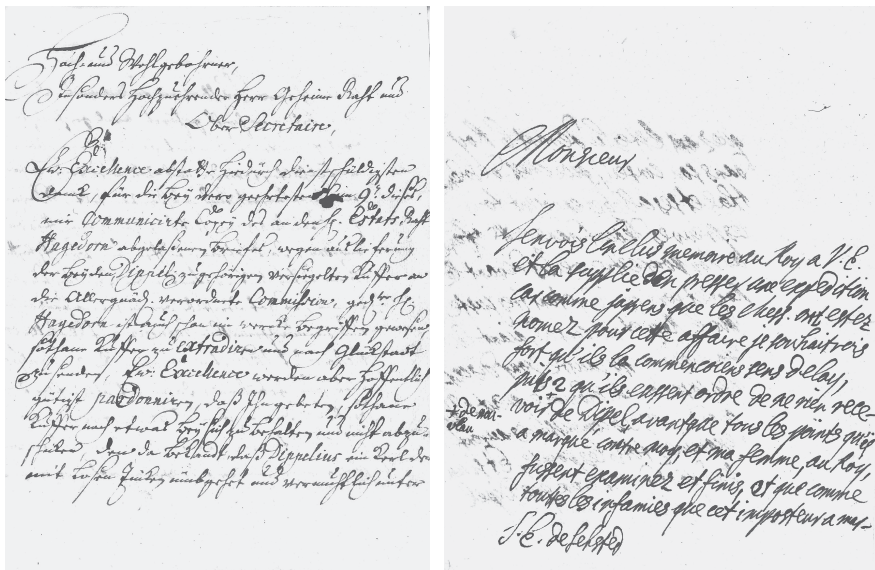 Hoch- und Wohlgebohrner,
besonders Hochzuehrender Herr Geheime Raht und
Ober Secretaire,
Ew. Excellence abstatte hiedurch dienstschuldigsten
Danck, für die bey dero geehrtesten vom 9. dieses,
mir Communicirte Copey des an den H. Estats Raht
Hagedorn abgelaßenen Briefes, wegen auslieferung
der beyden Dippel zugehörigen versiegelten Kuffer an
die Allergnäd. verordnete Commission,
Hagedorn ist auch schon im wercke begriffen gewesen,
sothane Kuffer zu extradiren und nach Glückstadt
zu senden, Ew. Excellence werden aber hoffentlich
gütigst pardonniren, daß Ihn gebeten, sothane
Kuffer noch etwas bey sich zu behalten und nicht abzu-
schicken, denn da bekandt daß Dippelius ein Kerl der
mit losen umbgehet und vermuthlich unter
Monsieur
J'envois l'inclus memoire au Roy a V. E.
et la supplie d'en presser une expedition
car comme j'aprens que les Chess. ont estez
nomez pour cette affaire je souhaitrois
fort qu'ils la commencoient sens delay,
qu'ils eussent ordre de ne rien rece-
voir de Dipel avant que tous les points qu'il
a marqué contre moy et ma femme, au Roy,
fussent examinez et finis, et que comme
toutes les infamies que cet imposteur a
S. E. de Sehsted